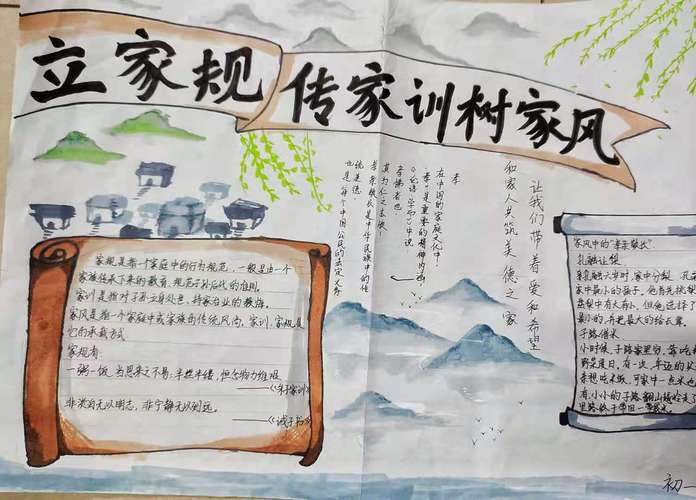 立家规
传家训树家风
家规是指一个家庭中的行为规范，一般是由一个
家族传承下来的教育规范子孙后代的准则。
家训是指对子孙立身处世、持家治业的教诲。
家风是指一个家庭中或家族的传统风尚，家训、家规是
它的承载方式
家规有：
一粥一饭，当思来之不易；半丝半缕，恒念物力维艰
——《朱子家训》
非淡泊无以明志，非宁静无以到远。
——《诫子书》
孝
在中国的家庭文化中
“孝”是重要的精神内涵，
《论语·学而》中说
孝悌者也
其为仁之本欤！
孝亲敬长是中华民族中的传
统美德
也是每个中国公民的法定义务
让我们带着爱和希望
和家人共筑美德之家
家风中的“孝亲敬长”
孔融让梨
家中最小的孩子。
梨中有大有小，但他选择了
最小的，并把最大的给长辈。
子路借米
小时候，子路家里穷，
野菜度日，有一次，年迈的父
希望吃米饭，可家中一点米
有，小小的子路翻山越岭走了
里路，终于带回一带米。
初一